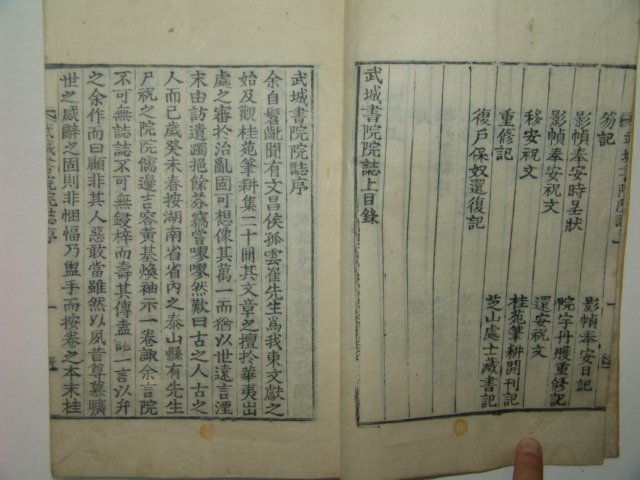 武城書院院誌
笏記
影幀奉安時呈狀 影幀奉安日記
影幀奉安祝文 院宇丹雘重修記
移安祝文 還安祝文
重修記 桂苑筆耕開刊記
復戶保奴還復記 芝山處士藏書記
武城書院院誌上目錄
武城書院院誌序
余自髫齔聞有文昌侯孤雲崔先生爲我東文獻之
始及觀桂苑筆耕集二十冊其文章之擅於華夷出
處之審於治亂固可想像其萬一而猶以世遠言湮
末由訪遺躅挹餘芬竊嘗嘐嘐然歎曰古之人古之
人而已歲癸未春按湖南省省內之泰山縣有先生
尸祝之院院儒邊吉容黃基煥袖示一卷諏余言院
不可無誌誌不可無鋟梓而壽其傳盍一言以弁
之余作而曰顧非其人惡敢當雖然以夙昔尊慕曠
世之感辭之固則非悃愊乃盥手而按卷之本末桂
武城書院院誌序 一